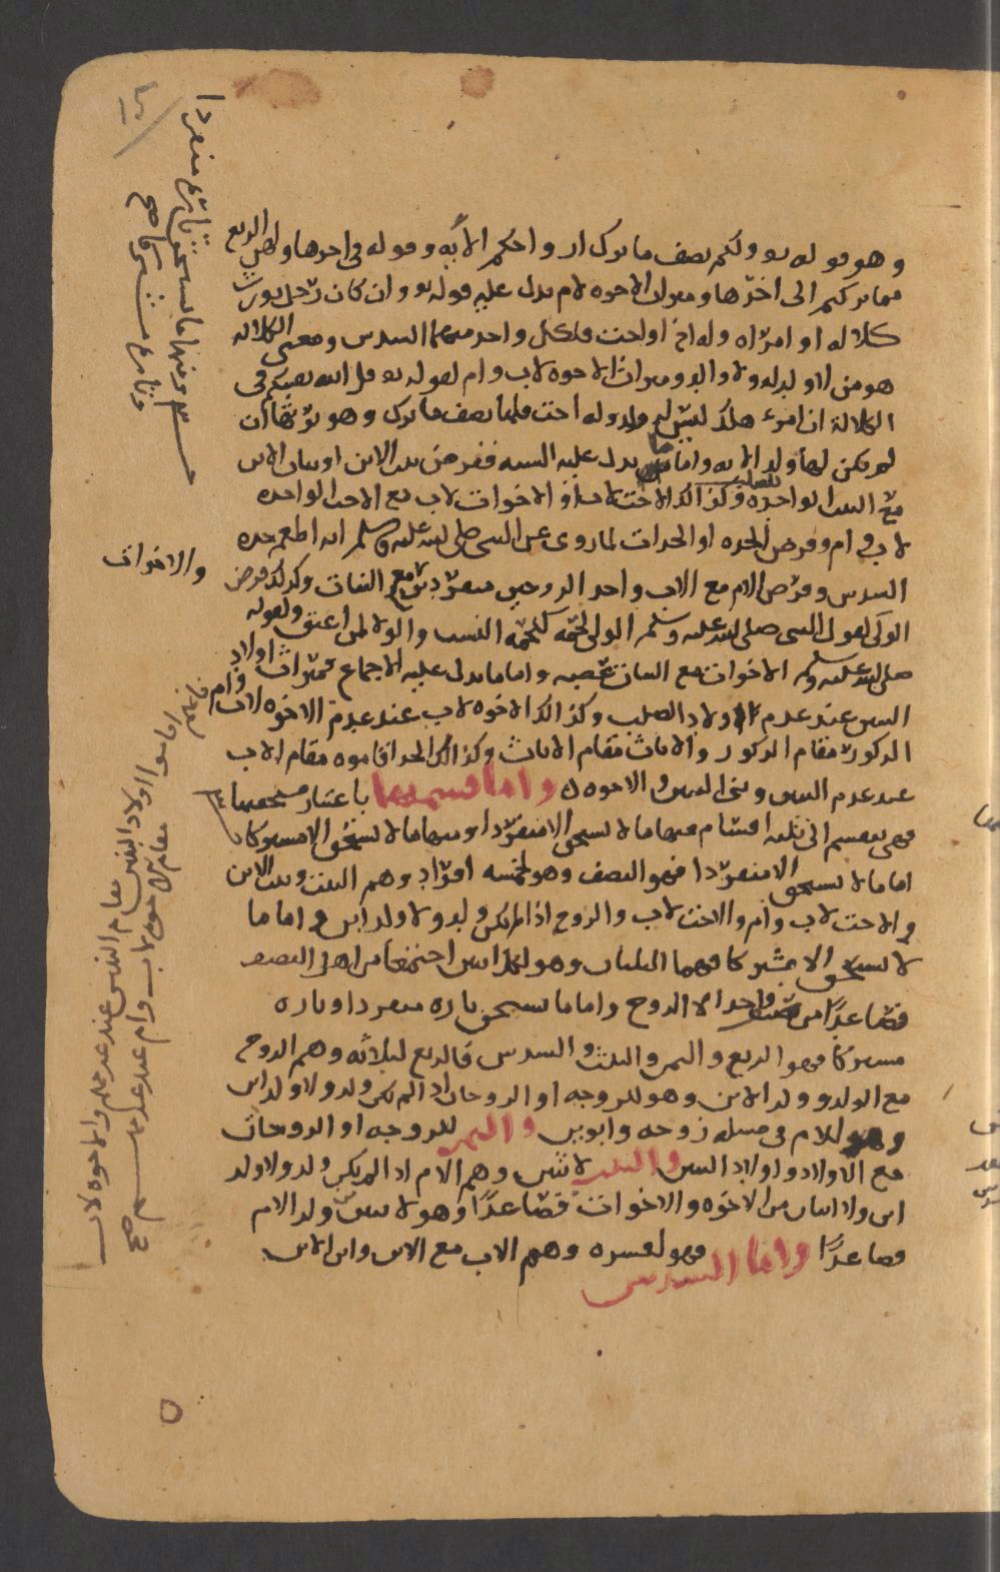 وهو قوله تعالى ولكم نصف ما ترك ازواجكم الآية وقوله في اخرها ولهن الربع
مما تركتم الى اخرها وميراث الاخوة لام يدل عليه قوله تعالى وان كان رجل يورث
كلالة او امراة وله اخ او اخت فلكل واحد منهما السدس ومعنى الكلالة
هو من لا ولد له ولا والد وميراث الاخوة لاب وام لقوله تعالى قل الله يفتيكم في
الكلالة ان امرء هلك ليس له ولد وله اخت فلها نصف ما ترك وهو يرثها ان
لم يكن لها ولد الآية واما ما يدل عليه السنة ففرض بنت الابن او بنات الابن
مع البنت الواحدة وكذلك الاخت لاب او الاخوات لاب مع الاخت الواحدة
لاب وام وفرض الجدة او الجدات لما روى عن النبي صلى الله عليه وسلم انه اطعم جدة
السدس وفرض الام مع الاب واحد الزوجين منفردين مع البنات وكذلك فرض
المولى لقول النبي صلى الله عليه وسلم الولى لحمة كلحمة النسب والولا لمن اعتق ولقوله
صلى الله عليه وسلم الاخوات مع البنات عصبة واما ما يدل عليه الاجماع فميراث اولاد
البنين عند عدم اولاد الصلب وكذلك الاخوة لاب عند عدم الاخوة لاب وام
الذكور مقام الذكور والاناث مقام الاناث وكذلك الجد اقاموه مقام الاب
عند عدم البنين وبنى البنين والاخوة واما قسمتها باعتبار مستحقيها
فهي ينقسم الى ثلثة اقسام منها ما لا يستحق الا منفردا ومنها ما لا يستحق الا مشتركا
اما ما لا يستحق الا منفردا فهو النصف وهو لخمسة افراد وهم البنت وبنت الابن
والاخت لاب وام والاخت لاب والزوج اذا لم يكن ولد ولا ولد ابن واما ما
لا يستحق الا مشتركا فهما الثلثان وهو لكل اثنين اجتمعا من اهل النصف
فصاعدا من صنف واحد الا الزوج واما ما يستحق تارة منفردا وتارة
مشتركا فهو الربع والثمن والثلث والسدس فالربع لثلاثة وهم الزوج
مع الولد وولد الابن وهو للزوجة او الزوجات اذا لم يكن ولد ولا ولد ابن
وهو للام في مسئلة زوجة وابوين والثمن للزوجة او الزوجات
مع الاولاد واولاد البنين والثلث لاثنين وهم الام اذا لم يكن ولد ولا ولد
ابن ولا اثنان من الاخوة والاخوات فصاعدا وهو لاثنين من ولد الام
فصاعدا واما السدس فهو لعشرة وهم الاب مع الابن وابن الابن
والاخوات
ومنها ما يستحق تارة منفردا
وتارة مشتركا صح
اقاموا اولاد البنين مقام البنين عند عدمهم والاخوة لاب
مقام الاخوة لاب وام عند عدمهم صح